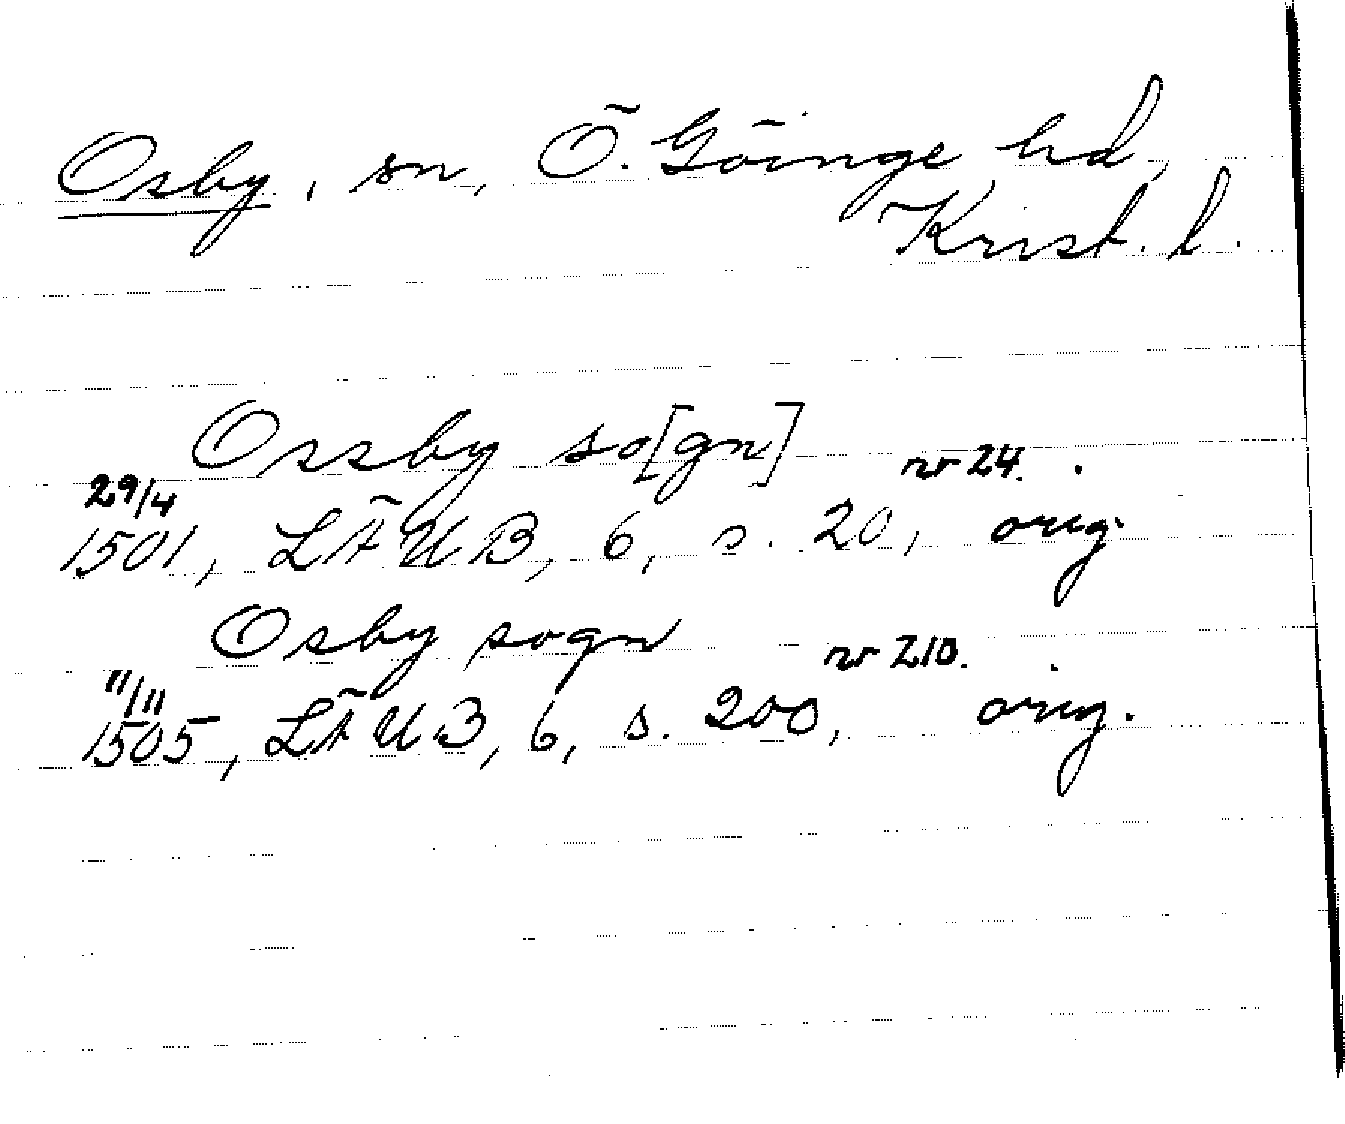 Osby, sn, Ö. Göinge hd,
Krist. l.
Ossby so[gn]
29/4 nr 24.
1501, LÄUB, 6, s. 20, orig.
Osby sogn
11/11 nr 210.
1505, LÄUB, 6, s. 200, orig.